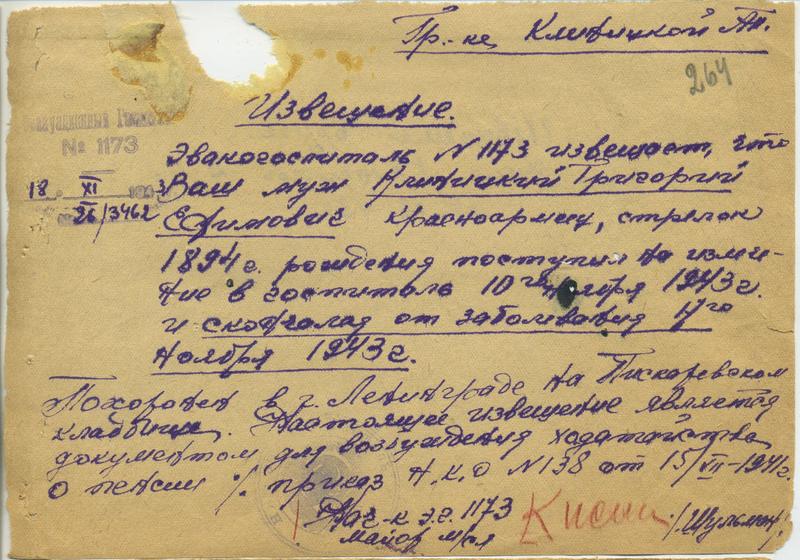 Гр-не Климицкой Ан.
264
Извещение.
Эвакуационный Госпиталь
№ 1173
18 XI 1943
26/3462
Эвакогоспиталь N 1173 извещает, что
Ваш муж Климицкий Григорий
Ефимович красноармеец, стрелок
1894 г. рождения поступил на излече-
ние в госпиталь 10го ноября 1943 г.
и скончался от заболевания 17го
ноября 1943 г.
Похоронен в г. Ленинграде на Пискаревском
кладбище. Настоящее извещение является
документом для возбуждения ходатайства
о пенсии % приказ Н.К.О N 138 от 15/III-1941г.
Нач-к э.г. 1173
майор м/сл
/Шульман/